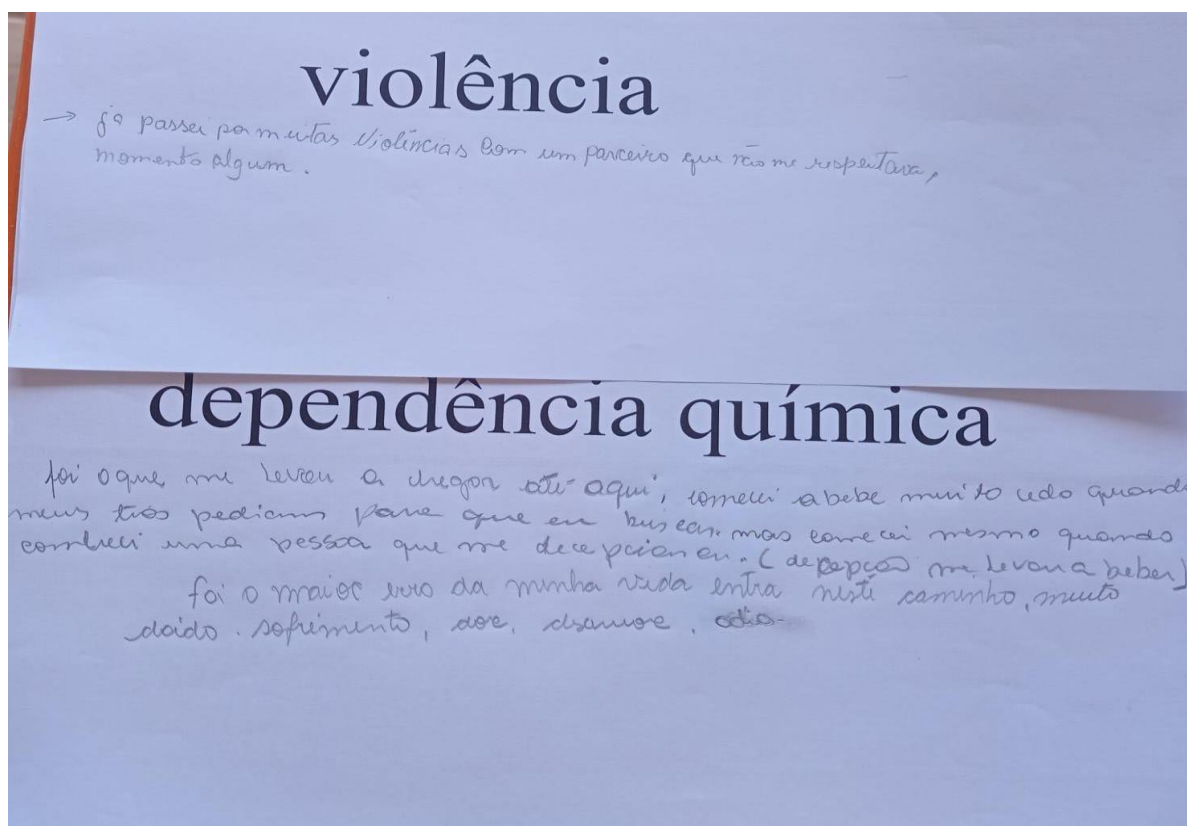 violência
→ já passei por muitas violências com um parceiro que não me respeitava,
momento algum.
dependência química
foi oque me levou a chegar até aqui, comecei a bebe muito cedo quando
meus tios pediam para que eu buscar. mas comecei mesmo quando
conheci uma pessoa que me decepcionou. (decepção me levou a beber)
foi o maior erro da minha vida entra neste caminho, muito
doido. sofrimento, dor, desamor, odio